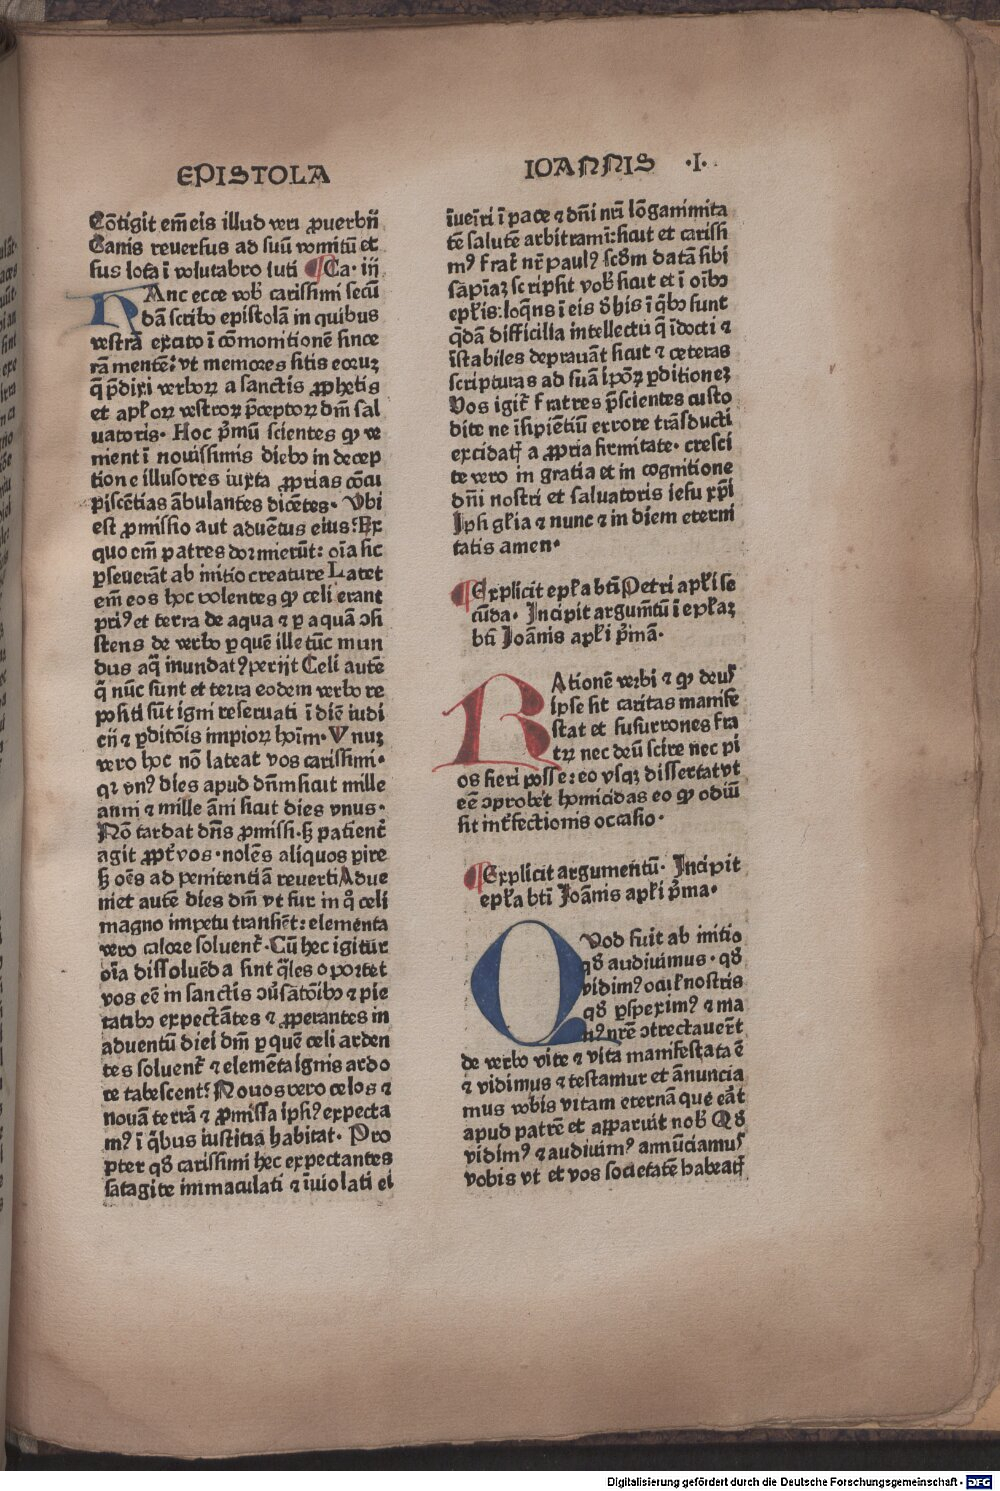 EPISTOLA
Cōtigit em̄ eis illud veri ꝓuerbii
Canis reuersus ad suū vomitū et
sus lota ī volutabro luti ¶Ca· iij
HAnc ecce vob̄ carissimi secū
dā scribo epistolā in quibus
vestrā excito ī cōmonitionē since
rā mentē: vt memores sitis eoruꝫ
q̄ p̄dixi verboꝝ a sanctis ꝓphetis
et apl̄oꝝ vestroꝝ p̄ceptoꝝ dn̄i sal
uatoris· Hoc p̄mū scientes qꝙ ve
nient ī nouissimis diebꝰ in decep
tione illusores iuxta ꝓprias cōcu
piscētias ābulantes dicētes· Vbi
est ꝓmissio aut aduētus eius? Ex
quo em̄ patres dormierūt: oīa sic
ꝑseuerāt ab initio creature Latet
em̄ eos hoc volentes ꝙ celi erant
priꝰ et terra de aqua ⁊ ꝑ aquā ꝯsi
stens de verbo ꝑ quē ille tūc mun
dus aq̄ inundatꝰ perijt Celi autē
q̄ nūc sunt et terra eodem verbo re
positi sūt igni reseruati ī diē iudi
cij ⁊ ꝑditōis impioꝝ hoīm· Vnuꝫ
vero hoc nō lateat vos carissimi·
qꝛ vnꝰ dies apud dn̄m sicut mille
anni ⁊ mille āni sicut dies vnus·
Nō tardat dn̄s ꝓmissi· sꝫ patient᷑
agit ꝓpt᷑ vos· nolēs aliquos ꝑire
sꝫ oēs ad penitentiā reuerti Adue
niet autē dies dn̄i vt fur in q̊ celi
magno impetu transiēt: elementa
vero calore soluent᷑· Cū hec igitur
oīa dissoluēda sint q̄les oportet
vos eē in sanctis ꝯūsatōibꝰ ⁊ pie
tatibꝰ expectātes ⁊ ꝓperantes in
aduentū diei dn̄i ꝑ quē celi arden
tes soluent᷑ ⁊ elemēta ignis ardo
re tabescent? Nouos vero celos ⁊
nouā terrā ⁊ ꝓmissa ipsiꝰ expecta
mꝰ ī q̄bus iustitia habitat· Pro
pter qḋ carissimi hec expectantes
satagite immaculati ⁊ īuiolati ei
IOANNIS ·I·
īueīri ī pace ⁊ dn̄i nr̄i lōganimita
tē salutē arbitramī: sicut et carissi
mꝰ frat᷑ nr̄ paulꝰ scḋm datā sibi
sapīaꝫ scripsit vob̄ sicut et ī oībꝰ
epl̄is: loq̄ns ī eis ḋ his ī q̄bꝰ sunt
q̄dā difficilia intellectu q̄ īdocti ⁊
īstabiles deprauāt sicut ⁊ ceteras
scripturas ad suā ipoꝝ ꝑditioneꝫ
Vos igit᷑ fratres p̄scientes custo
dite ne īsipiētiū errore trāsducti
excidat᷑ a ꝓpria firmitate· cresci
te vero in gratia et in cognitione
dn̄i nostri et saluatoris iesu xp̄i
Ipsi gl̄ia ⁊ nunc ⁊ in diem eterni
tatis amen·
¶Explicit epl̄a bt̄i Petri apl̄i se
cūda· Incipit argum̄tū ī epl̄aꝫ
bt̄i Joānis apl̄i p̄mā·
RAtionē verbi ⁊ ꝙ deus
ipse sit caritas manife
stat et susurrones fra
tꝝ nec deū scire nec pi
os fieri posse: eo vsqꝫ dissertat vt
eē ꝯprobet homicidas eo ꝙ odiū
sit int᷑fectionis occasio·
¶Explicit argumentū· Incipit
epl̄a bt̄i Joānis apl̄i p̄ma·
QVod fuit ab initio
qḋ audiuimus· qḋ
vidimꝰ ocul̄ nostris
qḋ ꝑspeximꝰ ⁊ ma
nꝰ nr̄e ꝯtrectauer̄t
de verbo vite ⁊ vita manifestata ē
⁊ vidimus ⁊ testamur et ānuncia
mus vobis vitam eternā que eāt
apud patrē et apparuit nob̄ Qḋ
vidimꝰ ⁊ audiuimꝰ annūciamus
vobis vt et vos societatē habeat᷑
Digitalisierung gefördert durch die Deutsche Forschungsgemeinschaft - DFG